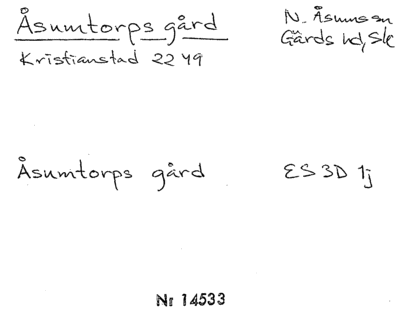 Åsumtorps gård
N. Åsums sn
Gärds hd, Sk
Kristianstad 2249
Åsumtorps gård
ES 3D 1j
Nr 14533